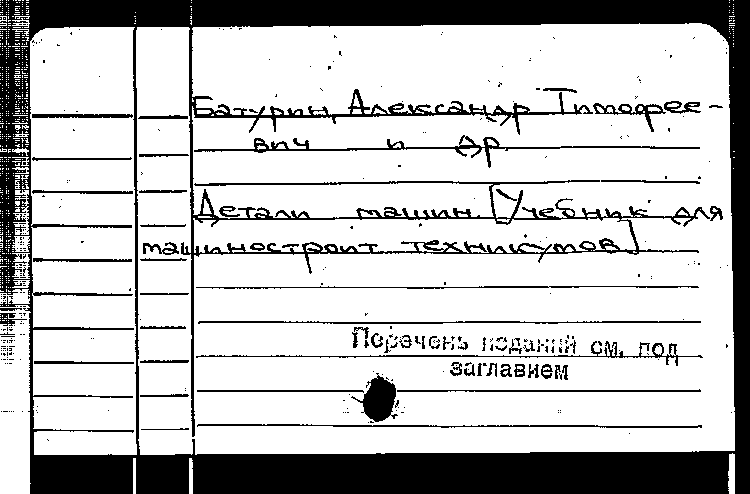 Батурин, Александр Тимофее-
вич и др
Детали машин. [Учебник для
машиностроит техникумов]
Перечень изданий см. под
заглавием